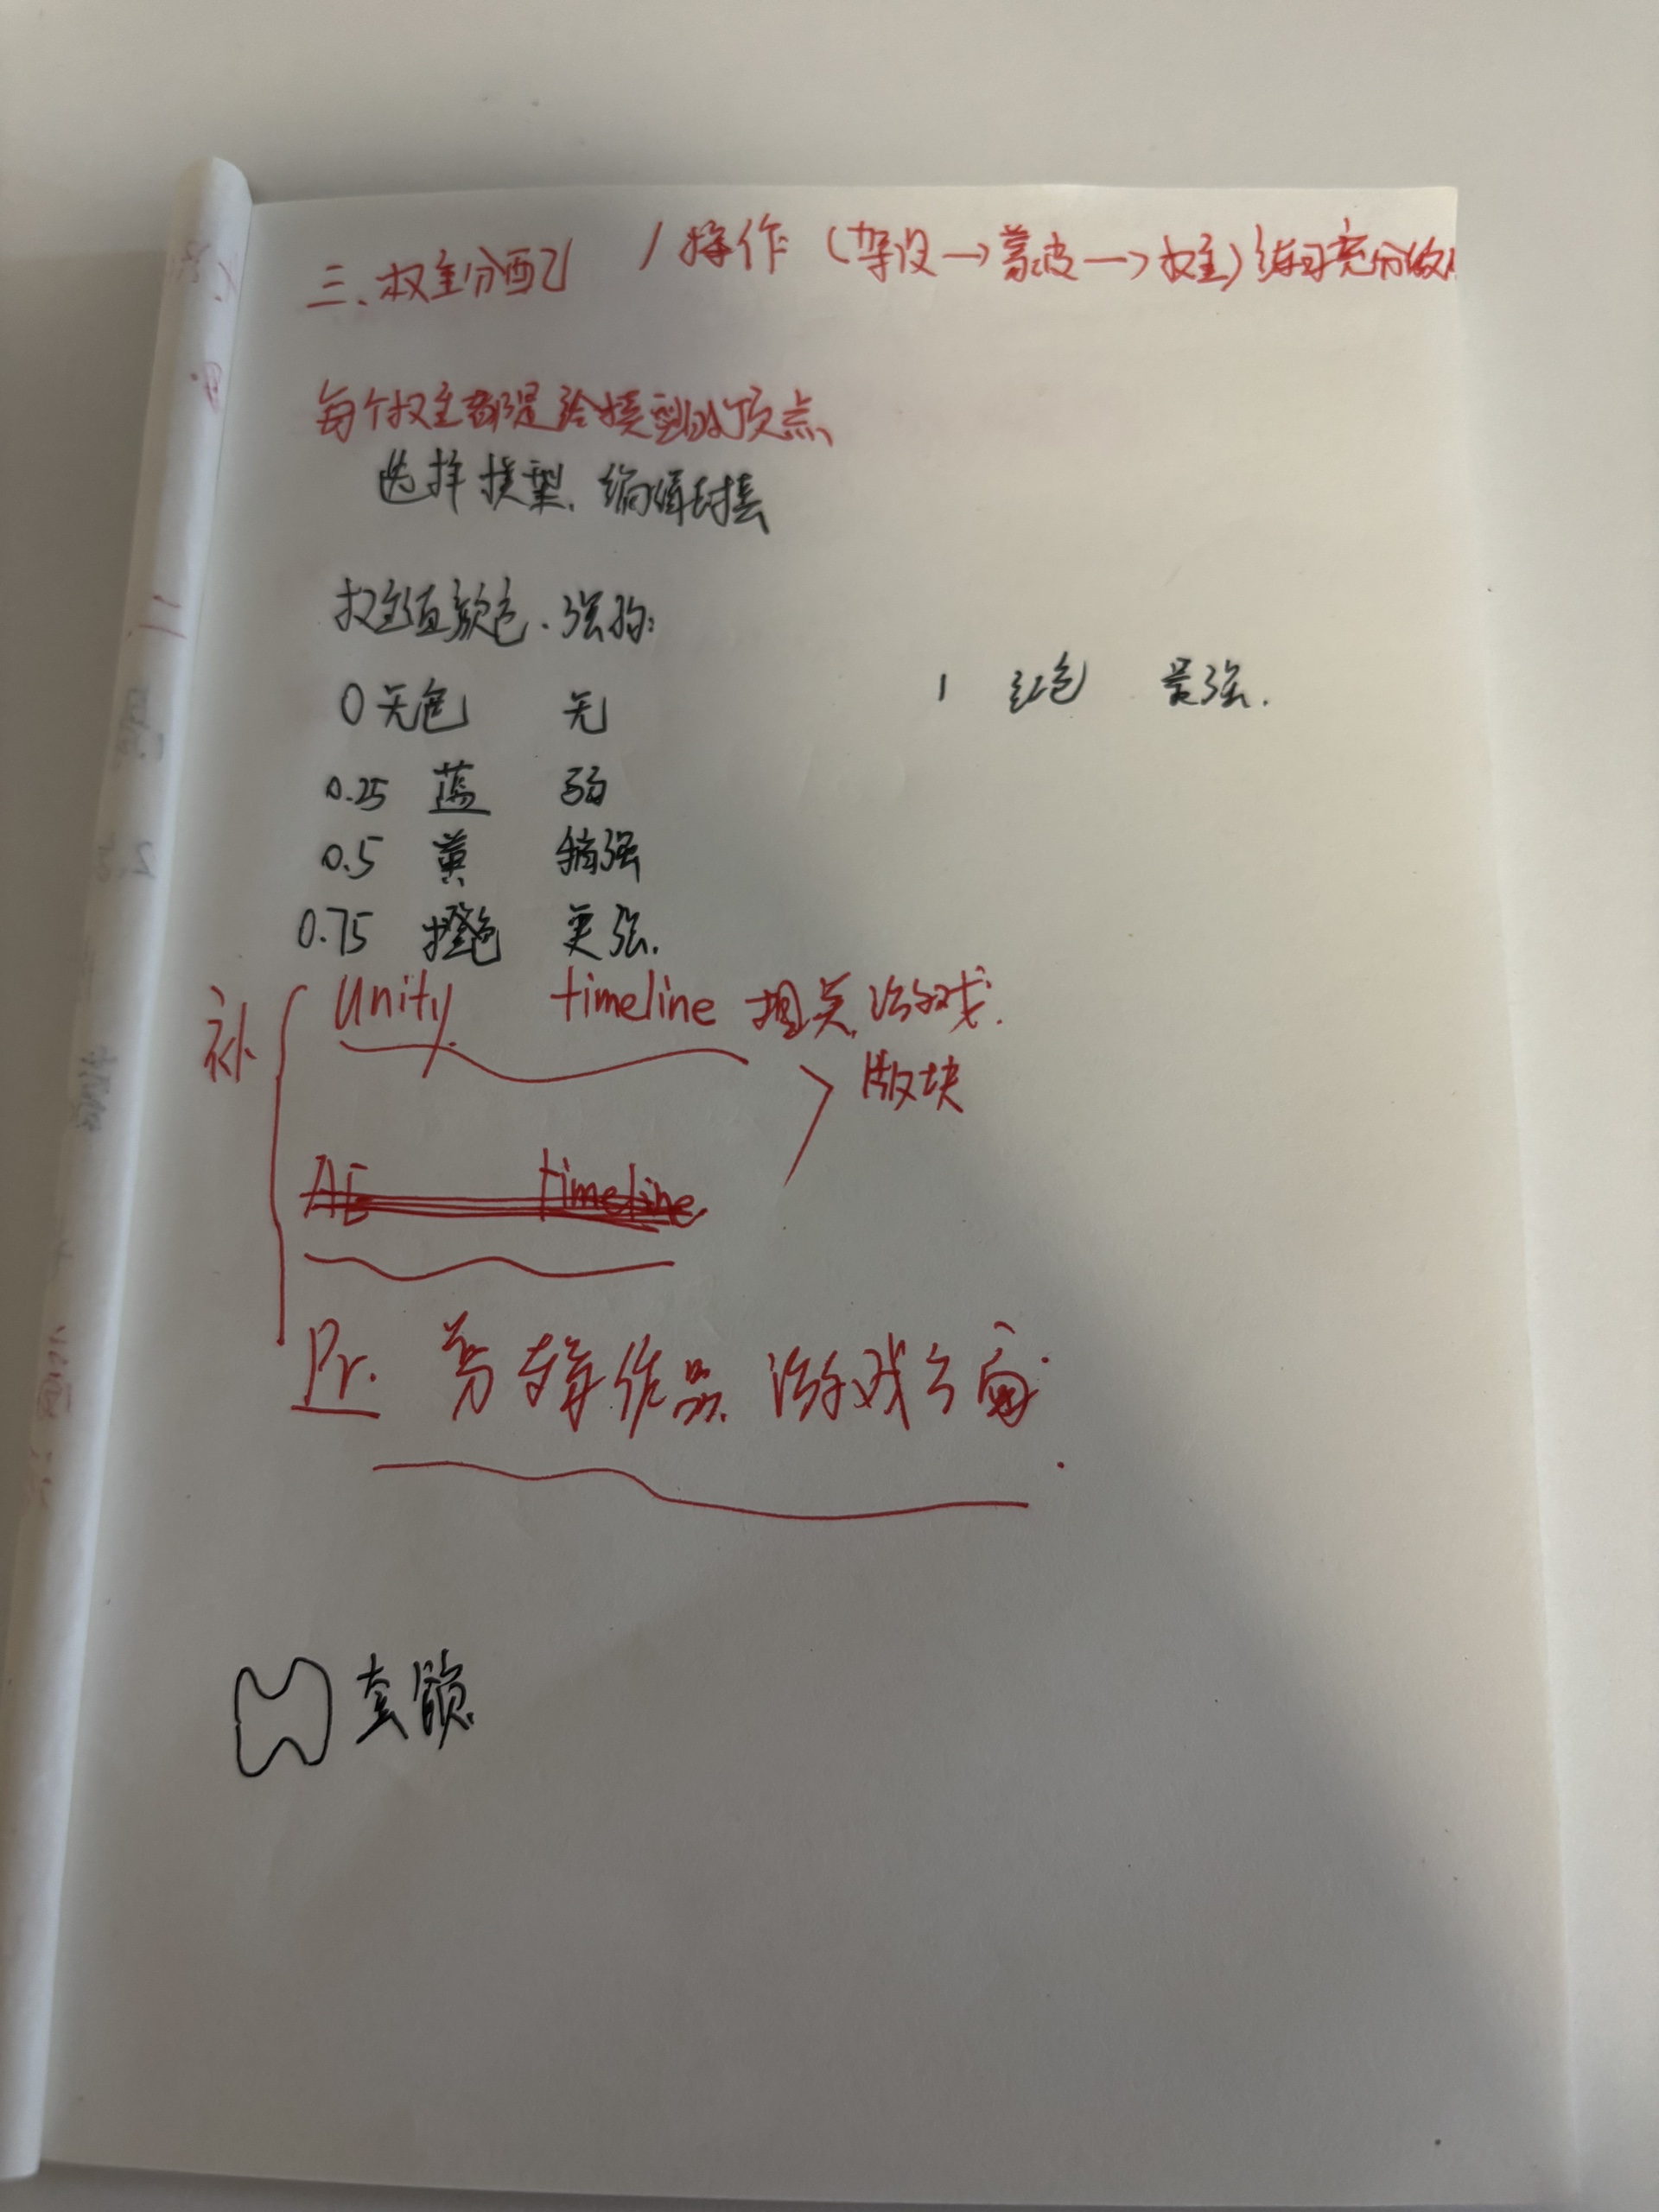 三、权重分配 / 操作（架设→蒙皮→权重）练习充分做
每个权重都是给模型的顶点
选择模型. 编辑封套
权重值颜色. 强弱:
0 无色 无 1 红色 最强.
0.25 蓝 弱
0.5 黄 稍强
0.75 橙色 更强.
补 Unity timeline 相关游戏.
版块
AE timeline
Pr. 剪辑作品 游戏
套索